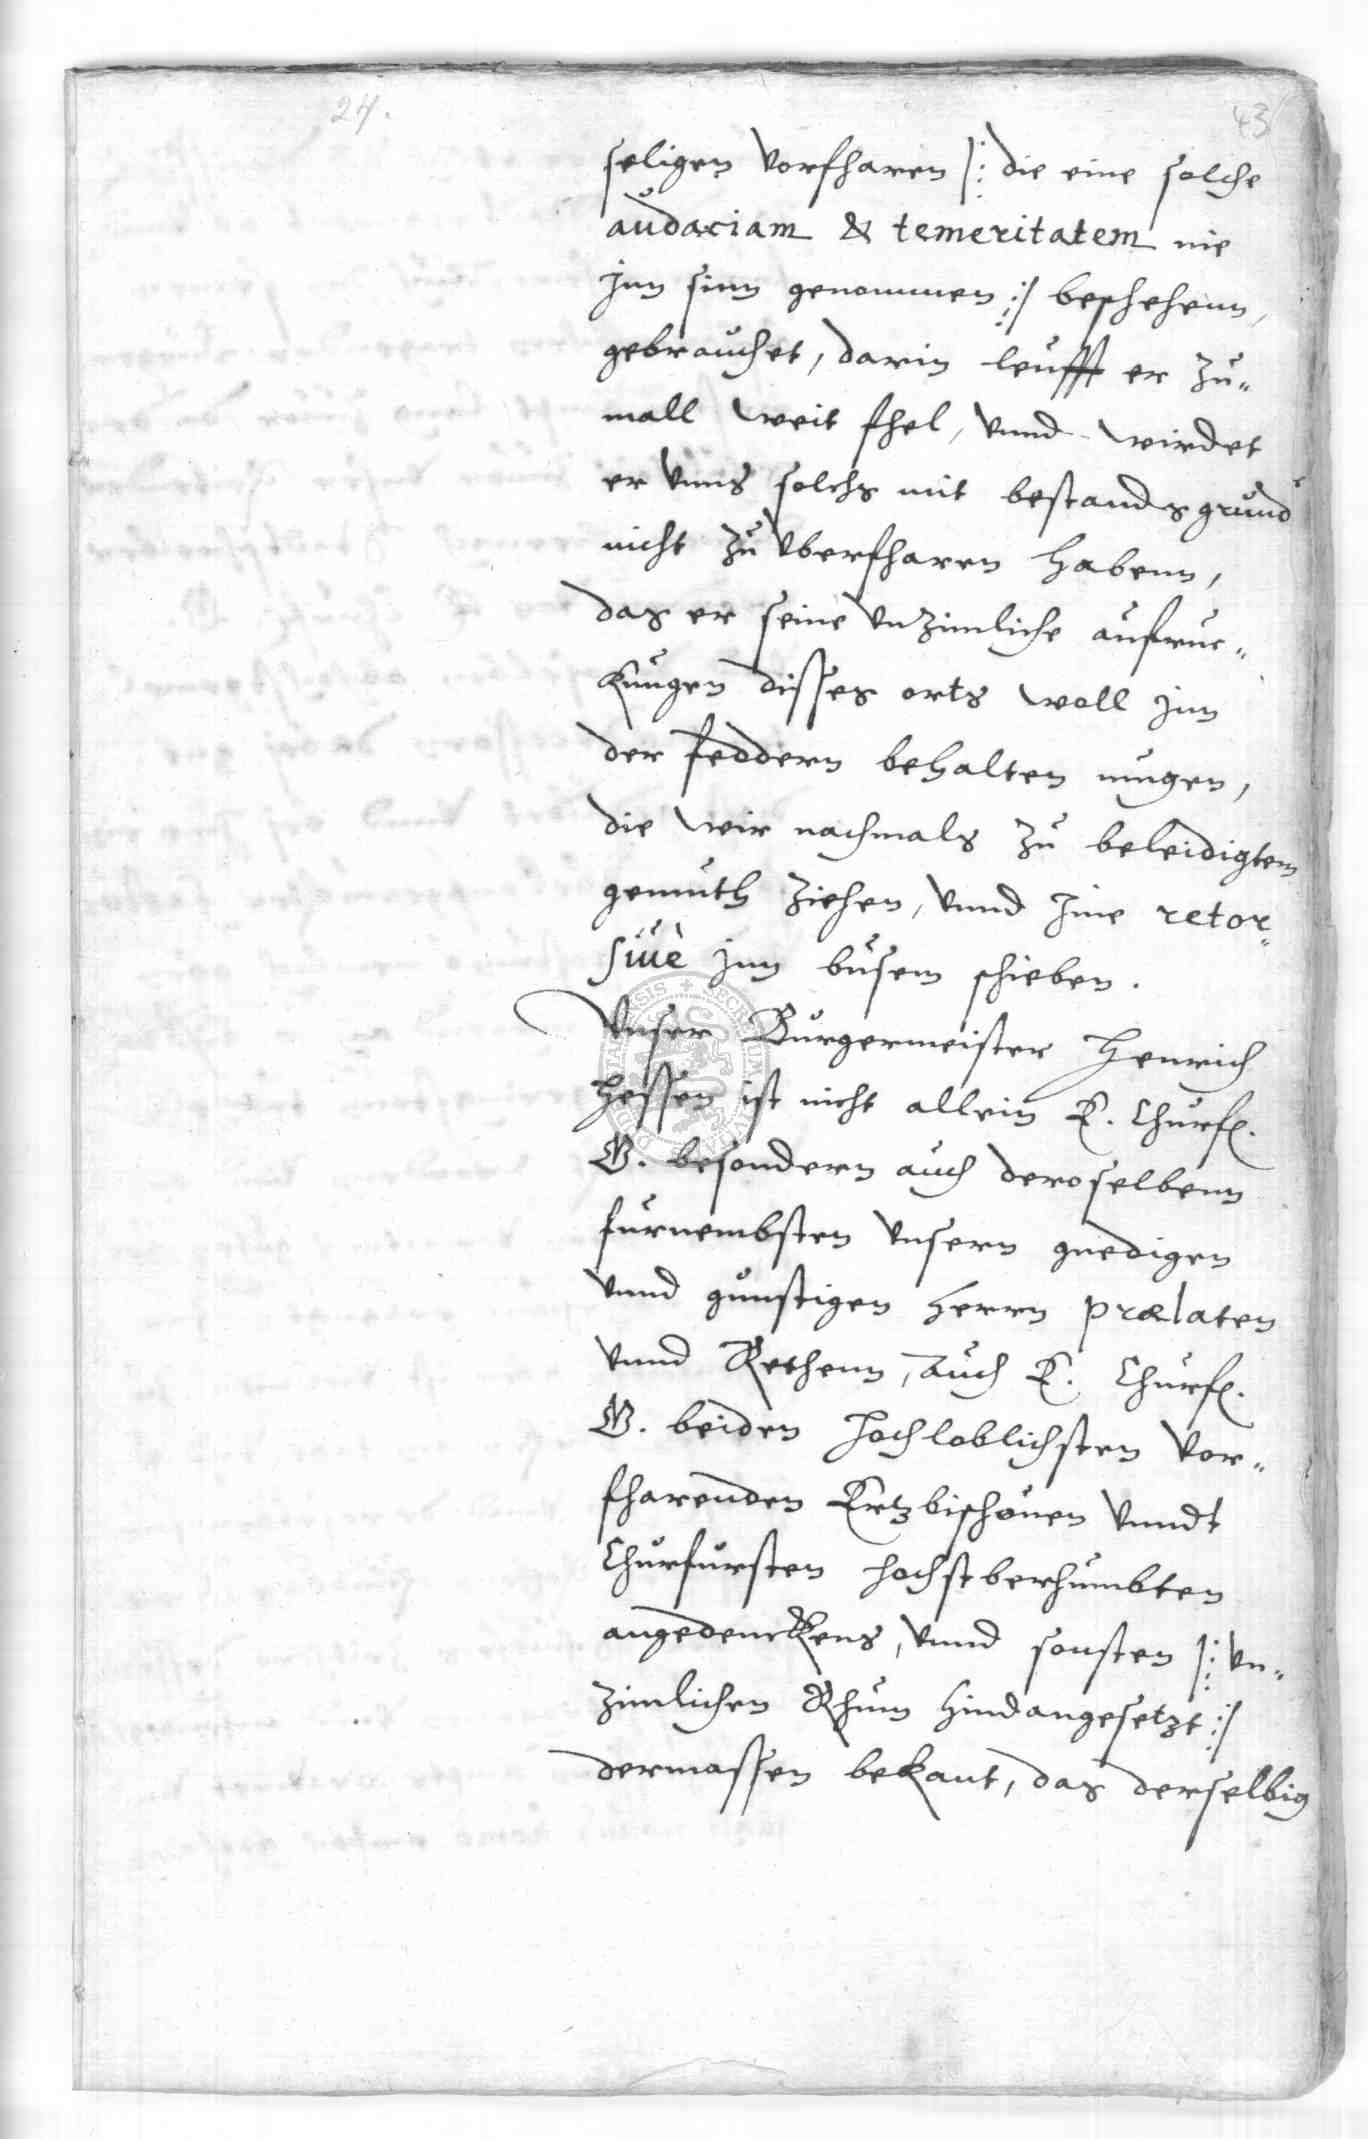 24.
43
seligen Vorfharen |: die eine solche
audaciam & temeritatem nie
jnn sinn genommen :| beschehenn,
gebrauchet, darin leufft er zu„
mall weit fhel, vnnd wirdet
er vnns solchs mit bestandsgrund
nicht zu vberfharen habenn,
das er seine vnzimliche aufruc„
kungen disses orts woll jnn
der feddern behalten mugen,
die wir nachmals zu beleidigtem
gemuth ziehen, vnnd jme retor„
siuè jnn busem schieben.
Vnser Burgermeister Henrich
Hessen ist nicht allein E. Churf.
G. besondern auch deroselbenn
furnembsten vnsern gnedigen
vnnd gunstigen Herrn prælaten
vnnd Rethenn, auch E. Churf.
G. beiden hochloblichsten Vor„
fharenden Ertzbischouen vnndt
Churfursten hochstberhumbten
angedenckens, vnnd sonsten |: vn„
zimlichen Rhum hindangesetzt :|
dermassen bekant, das derselbig